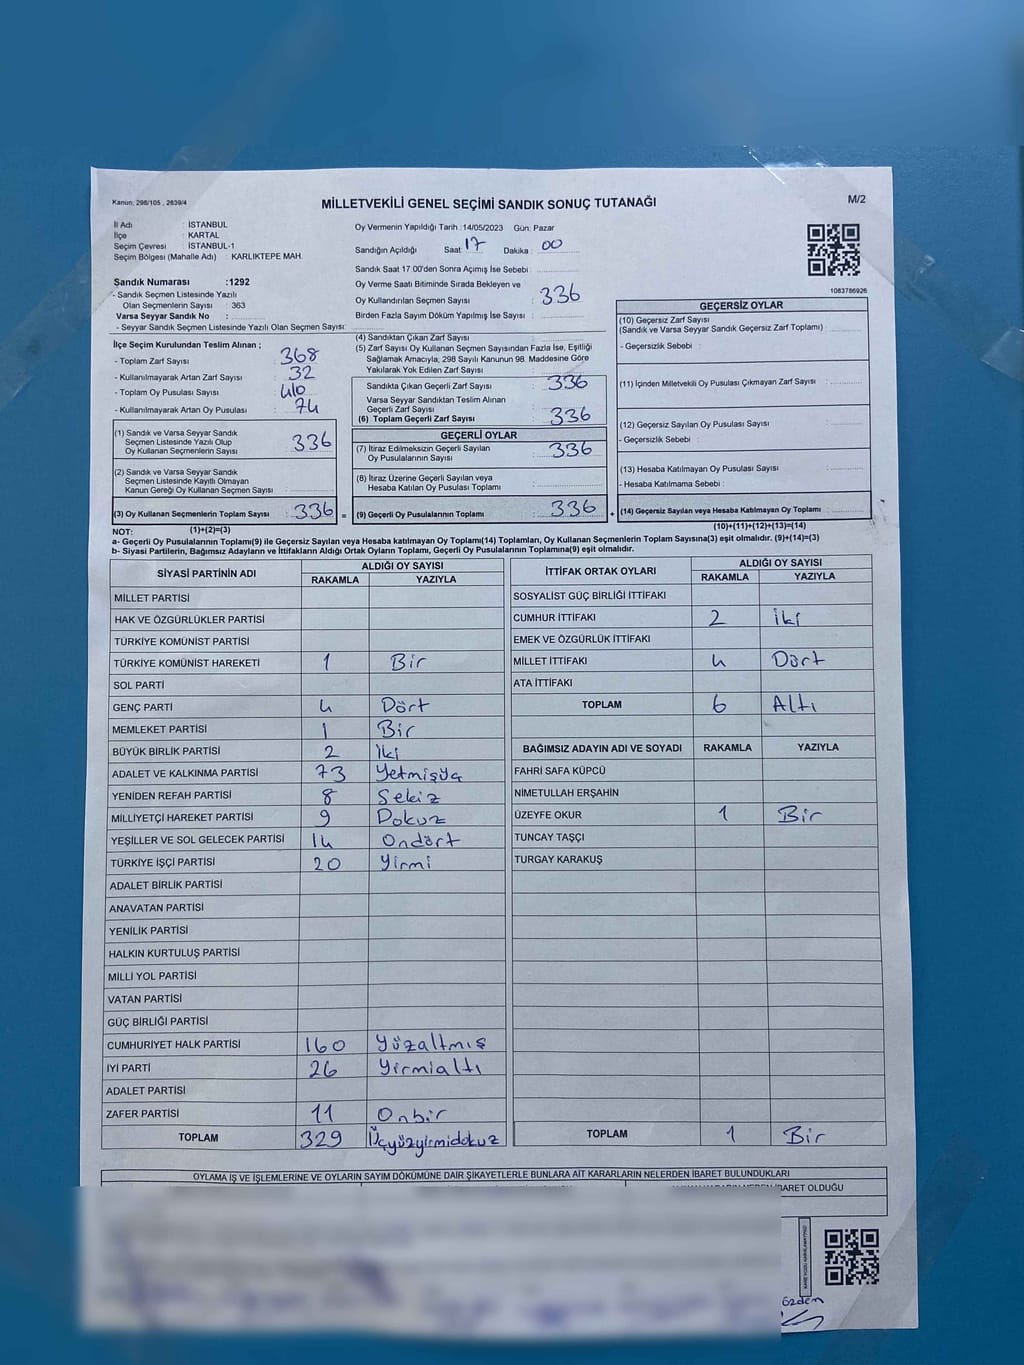 Kanun: 298/105 , 2839/4
MİLLETVEKİLİ GENEL SEÇİMİ SANDIK SONUÇ TUTANAĞI
M/2
İl Adı : İSTANBUL
İlçe : KARTAL
Seçim Çevresi : İSTANBUL-1
Seçim Bölgesi (Mahalle Adı) : KARLIKTEPE MAH.
Sandık Numarası :1292
- Sandık Seçmen Listesinde Yazılı
Olan Seçmenlerin Sayısı : 363
Varsa Seyyar Sandık No :
- Seyyar Sandık Seçmen Listesinde Yazılı Olan Seçmen Sayısı:
Oy Vermenin Yapıldığı Tarih :14/05/2023 Gün: Pazar
Sandığın Açıldığı Saat: 17 Dakika : 00
Sandık Saat 17:00'den Sonra Açımış İse Sebebi :
Oy Verme Saati Bitiminde Sırada Bekleyen ve
Oy Kullandırılan Seçmen Sayısı : 336
Birden Fazla Sayım Döküm Yapılmış İse Sayısı :
1083786926
İlçe Seçim Kurulundan Teslim Alınan ;
- Toplam Zarf Sayısı : 368
- Kullanılmayarak Artan Zarf Sayısı : 32
- Toplam Oy Pusulası Sayısı : 410
- Kullanılmayarak Artan Oy Pusulası : 74
(1) Sandık ve Varsa Seyyar Sandık
Seçmen Listesinde Yazılı Olup
Oy Kullanan Seçmenlerin Sayısı : 336
(2) Sandık ve Varsa Seyyar Sandık
Seçmen Listesinde Kayıtlı Olmayan
Kanun Gereği Oy Kullanan Seçmen Sayısı :
(3) Oy Kullanan Seçmenlerin Toplam Sayısı : 336 =
(4) Sandıktan Çıkan Zarf Sayısı :
(5) Zarf Sayısı Oy Kullanan Seçmen Sayısından Fazla İse, Eşitliği
Sağlamak Amacıyla, 298 Sayılı Kanunun 98. Maddesine Göre
Yakılarak Yok Edilen Zarf Sayısı :
Sandıkta Çıkan Geçerli Zarf Sayısı : 336
Varsa Seyyar Sandıktan Teslim Alınan
Geçerli Zarf Sayısı :
(6) Toplam Geçerli Zarf Sayısı : 336
GEÇERLİ OYLAR
(7) İtiraz Edilmeksizin Geçerli Sayılan
Oy Pusulalarının Sayısı : 336
(8) İtiraz Üzerine Geçerli Sayılan veya
Hesaba Katılan Oy Pusulası Toplamı :
(9) Geçerli Oy Pusulalarının Toplamı : 336 +
GEÇERSİZ OYLAR
(10) Geçersiz Zarf Sayısı
(Sandık ve Varsa Seyyar Sandık Geçersiz Zarf Toplamı) :
- Geçersizlik Sebebi :
(11) İçinden Milletvekili Oy Pusulası Çıkmayan Zarf Sayısı :
(12) Geçersiz Sayılan Oy Pusulası Sayısı :
- Geçersizlik Sebebi :
(13) Hesaba Katılmayan Oy Pusulası Sayısı :
- Hesaba Katılmama Sebebi :
(14) Geçersiz Sayılan veya Hesaba Katılmayan Oy Toplamı :
NOT: (1)+(2)=(3)
(10)+(11)+(12)+(13)=(14)
a- Geçerli Oy Pusulalarının Toplamı(9) ile Geçersiz Sayılan veya Hesaba katılmayan Oy Toplamı(14) Toplamları, Oy Kullanan Seçmenlerin Toplam Sayısına(3) eşit olmalıdır. (9)+(14)=(3)
b- Siyasi Partilerin, Bağımsız Adayların ve İttifakların Aldığı Ortak Oyların Toplamı, Geçerli Oy Pusulalarının Toplamına(9) eşit olmalıdır.
SİYASİ PARTİNİN ADI ALDIĞI OY SAYISI
RAKAMLA YAZIYLA
MİLLET PARTİSİ
HAK VE ÖZGÜRLÜKLER PARTİSİ
TÜRKİYE KOMÜNİST PARTİSİ
TÜRKİYE KOMÜNİST HAREKETİ 1 Bir
SOL PARTİ
GENÇ PARTİ 4 Dört
MEMLEKET PARTİSİ 1 Bir
BÜYÜK BİRLİK PARTİSİ 2 İki
ADALET VE KALKINMA PARTİSİ 73 Yetmişüç
YENİDEN REFAH PARTİSİ 8 Sekiz
MİLLİYETÇİ HAREKET PARTİSİ 9 Dokuz
YEŞİLLER VE SOL GELECEK PARTİSİ 14 Ondört
TÜRKİYE İŞÇİ PARTİSİ 20 Yirmi
ADALET BİRLİK PARTİSİ
ANAVATAN PARTİSİ
YENİLİK PARTİSİ
HALKIN KURTULUŞ PARTİSİ
MİLLİ YOL PARTİSİ
VATAN PARTİSİ
GÜÇ BİRLİĞİ PARTİSİ
CUMHURİYET HALK PARTİSİ 160 Yüzaltmış
İYİ PARTİ 26 Yirmialtı
ADALET PARTİSİ
ZAFER PARTİSİ 11 Onbir
TOPLAM 329 Üçyüzyirmidokuz
İTTİFAK ORTAK OYLARI ALDIĞI OY SAYISI
RAKAMLA YAZIYLA
SOSYALİST GÜÇ BİRLİĞİ İTTİFAKI
CUMHUR İTTİFAKI 2 İki
EMEK VE ÖZGÜRLÜK İTTİFAKI
MİLLET İTTİFAKI 4 Dört
ATA İTTİFAKI
TOPLAM 6 Altı
BAĞIMSIZ ADAYIN ADI VE SOYADI RAKAMLA YAZIYLA
FAHRİ SAFA KÜPCÜ
NİMETULLAH ERŞAHİN
ÜZEYFE OKUR 1 Bir
TUNCAY TAŞÇI
TURGAY KARAKUŞ
TOPLAM 1 Bir
OYLAMA İŞ VE İŞLEMLERİNE VE OYLARIN SAYIM DÖKÜMÜNE DAİR ŞİKAYETLERLE BUNLARA AİT KARARLARIN NELERDEN İBARET BULUNDUKLARI
İBARET OLDUĞU
özdem